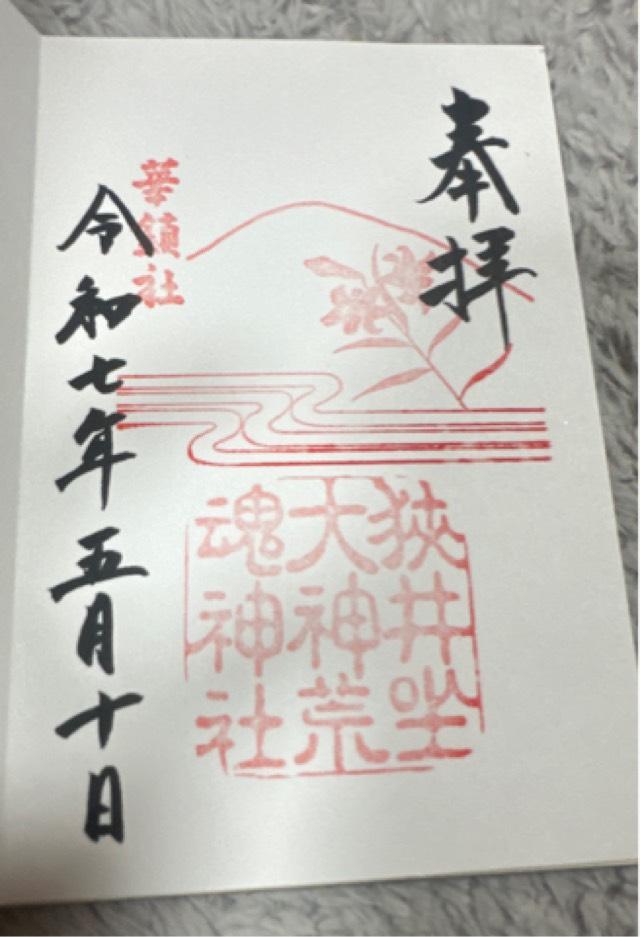 奉拝
狭井坐
大神荒
魂神社
華鎮社
令和七年五月十日